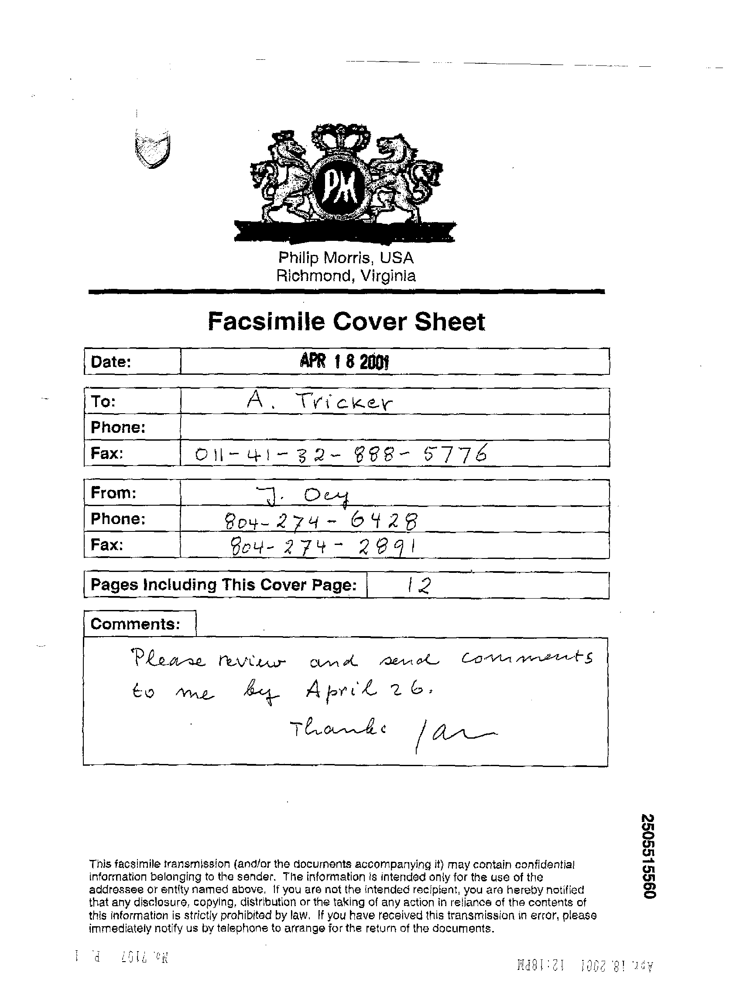 PM
Philip Morris, USA
Richmond, Virginia
Facsimile Cover Sheet
Date: APR 18 2001
To: A. Tricker
Phone:
Fax: 011-41-32-888-5776
From: J. Oey
Phone: 804-274-6428
Fax: 804-274-2891
Pages Including This Cover Page: 12
Comments:
Please review and send comments
to me by April 26.
Thanks Jan
2505515560
This facsimile transmission (and/or the documents accompanying it) may contain confidential
information belonging to the sender. The information is intended only for the use of the
addressee or entity named above. If you are not the intended recipient, you are hereby notified
that any disclosure, copying, distribution or the taking of any action in reliance of the contents of
this information is strictly prohibited by law. If you have received this transmission in error, please
immediately notify us by telephone to arrange for the return of the documents.
No. 7107 P. 1
Apr. 18. 2001 12:18PM